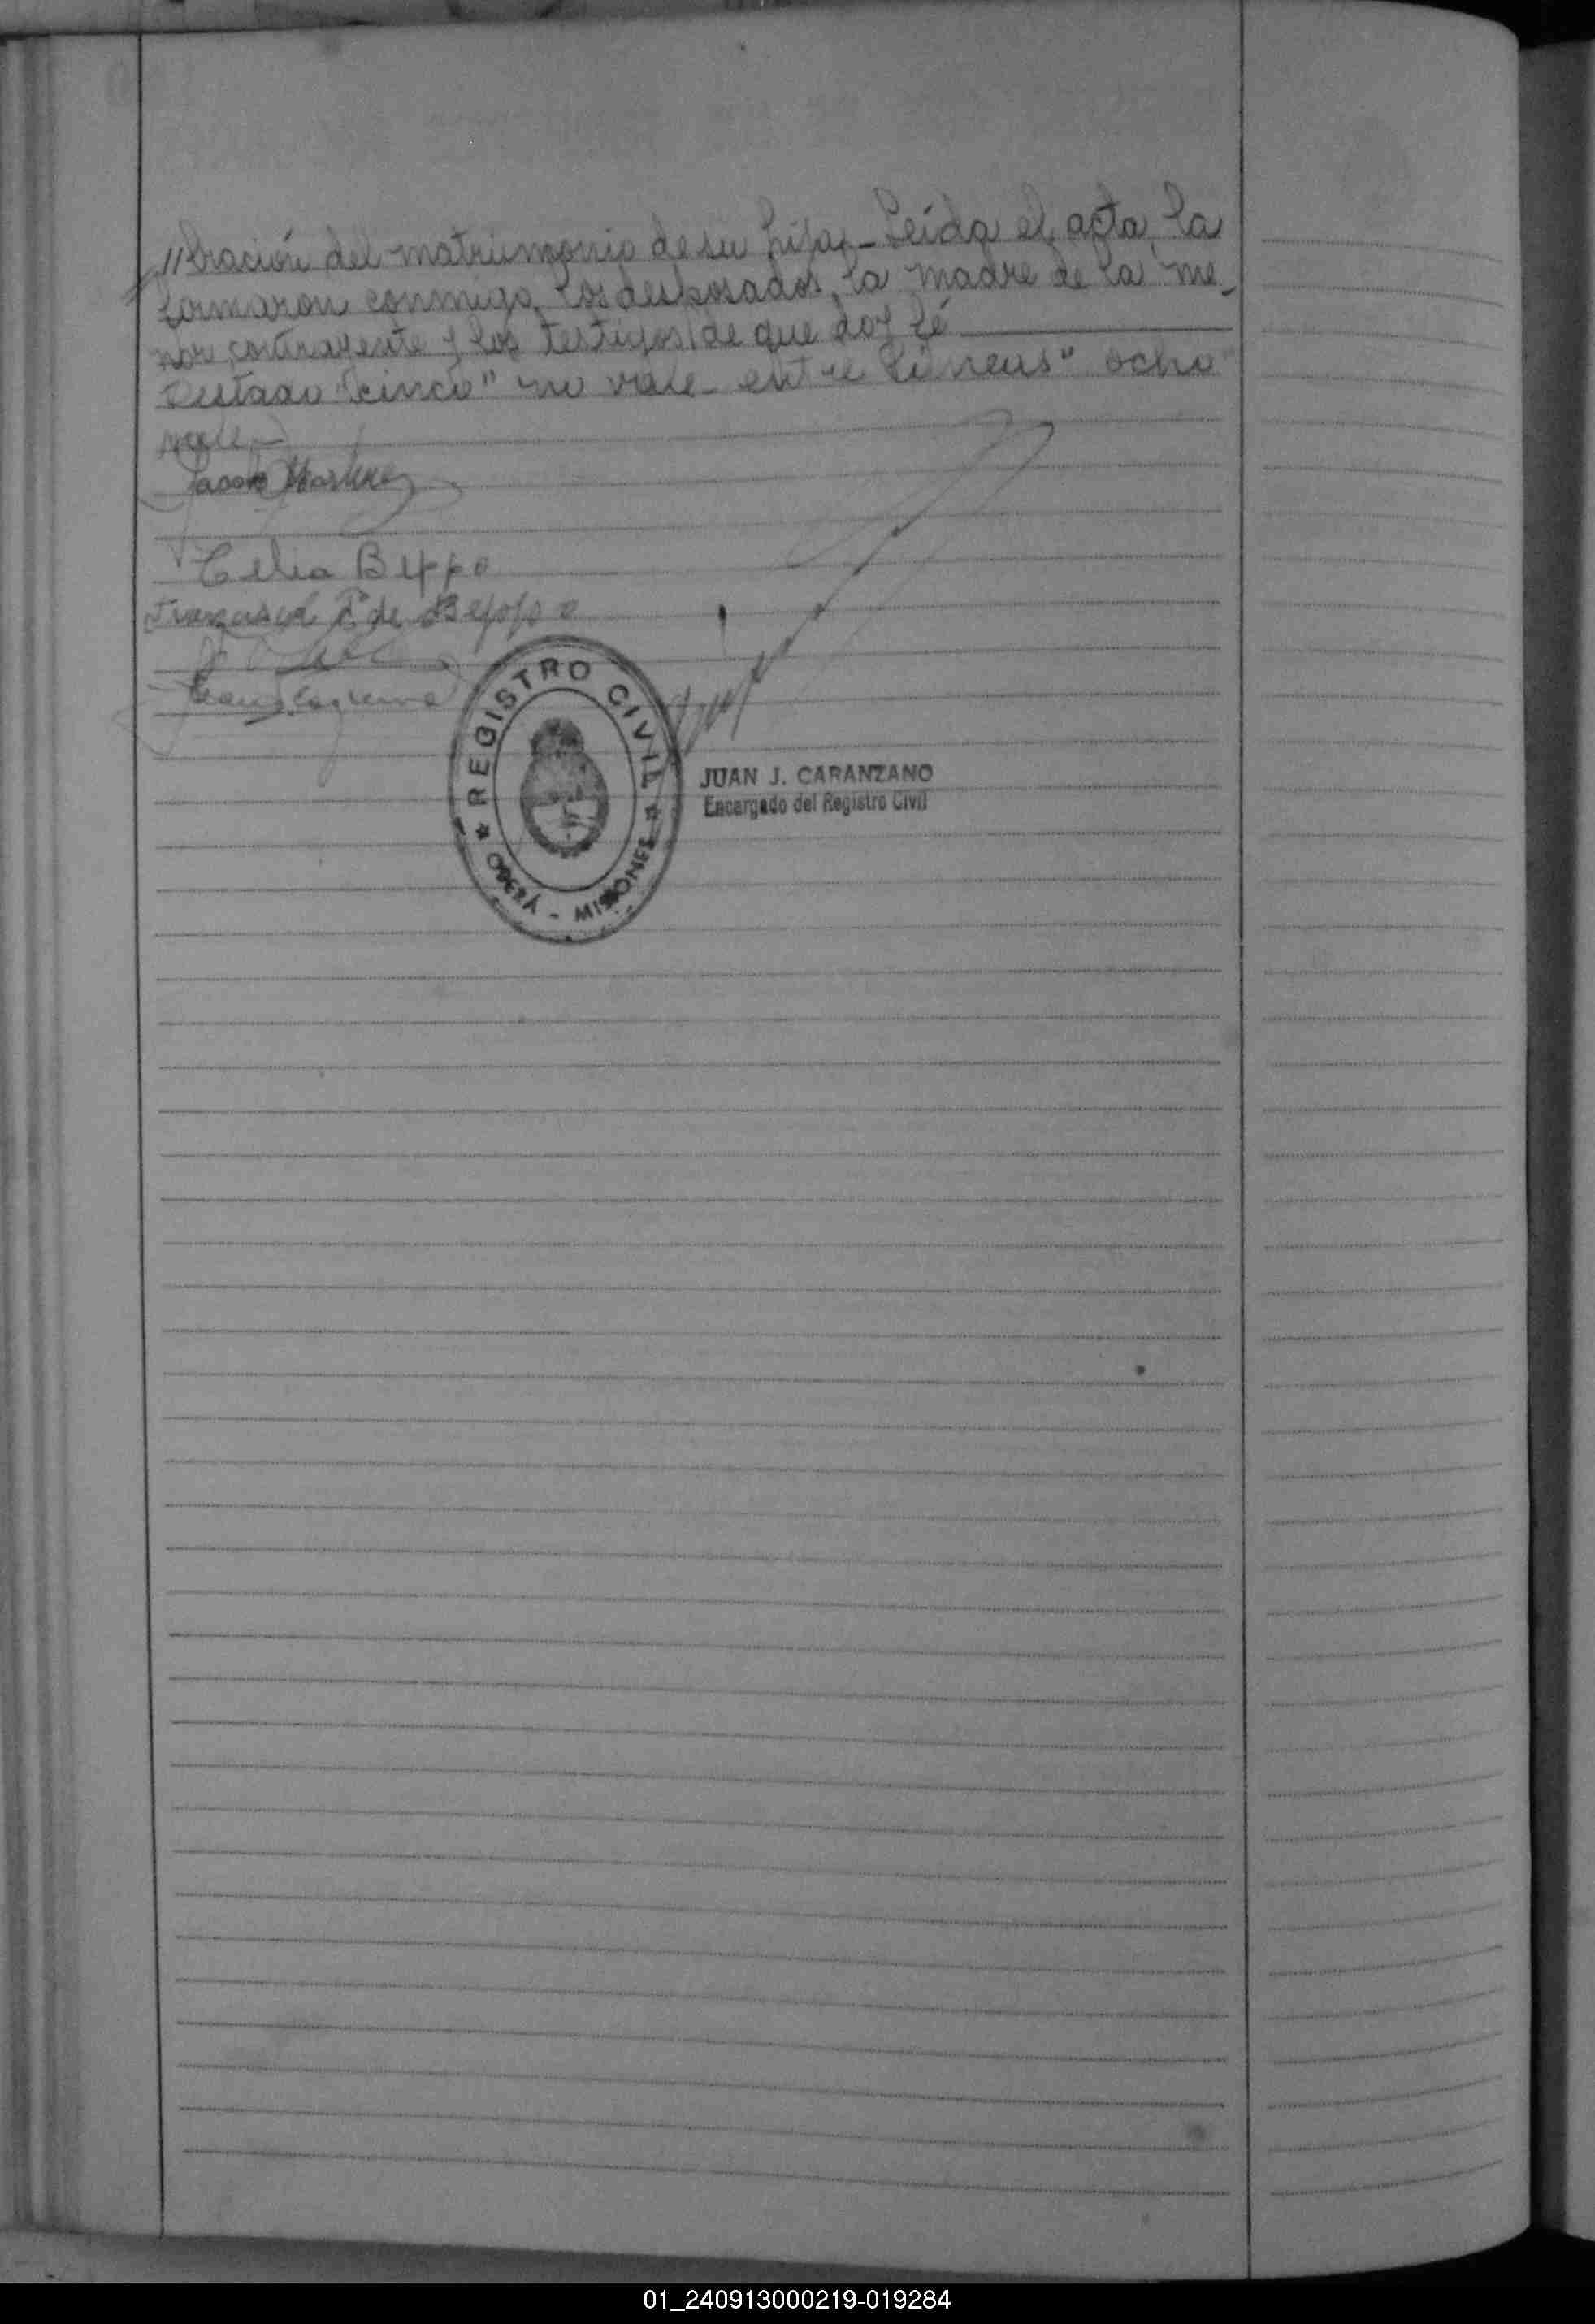 //bración del matrimonio de su hija.- Leída el acta, la
firmaron conmigo, los desposados, la madre de la me-
nor contrayente y los testigos de que doy fé
Testado "cinco" no vale - entre lineas "ocho"
vale -
Jacob
Celia Beppo
Francisca P. de Beppo
REGISTRO CIVIL
OBERÁ - MISIONES
JUAN J. CARANZANO
Encargado del Registro Civil
01_240913000219-019284